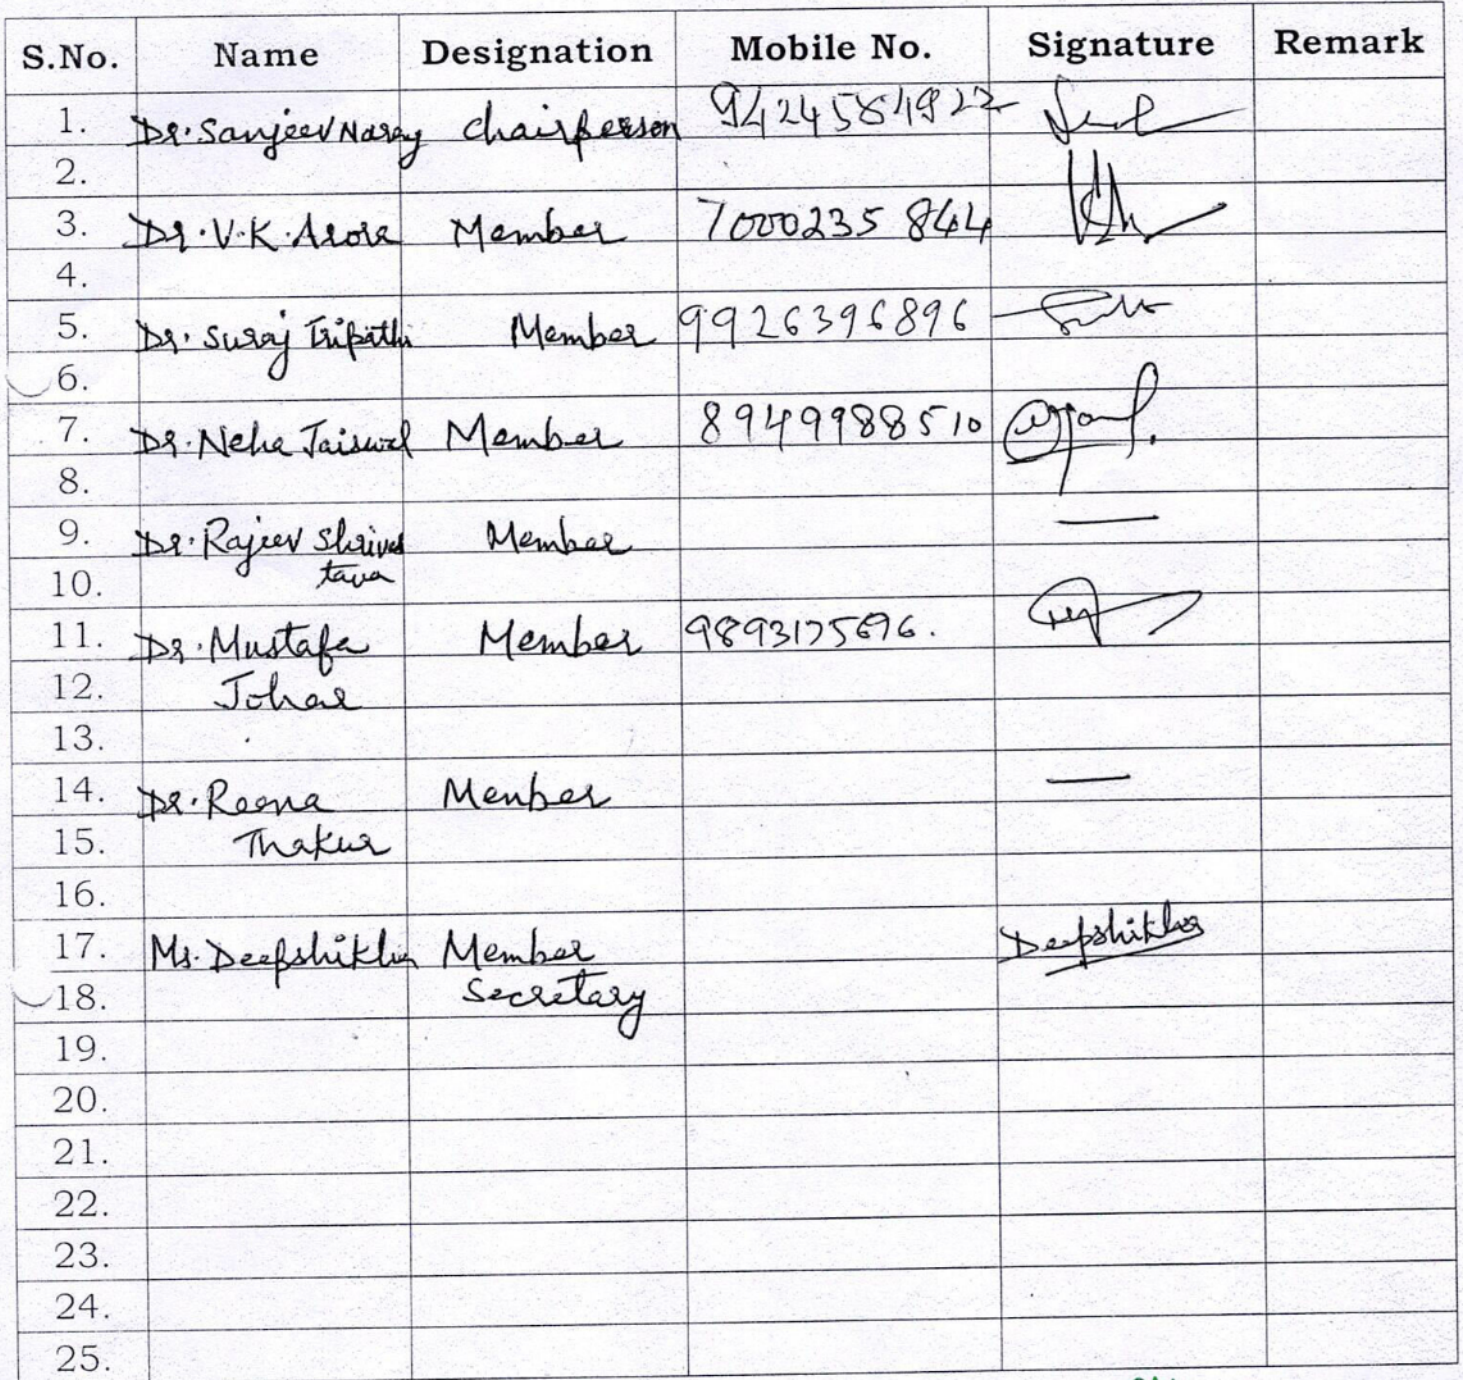 S.No. Name Designation Mobile No. Signature Remark
1. Dr. Sanjeev Narang Chairperson 9424584922
2.
3. Dr. V.K. Arora Member 7000235 844
4.
5. Dr. Suraj Tripathi Member 9926396896
6.
7. Dr. Neha Jaiswal Member 8949988510
8.
9. Dr. Rajeev Shrivas Member —
10. tava
11. Dr. Mustafa Member 9893175696.
12. Johar
13.
14. Dr. Reena Member —
15. Thakur
16.
17. Ms. Deepshikha Member Deepshikha
18. Secretary
19.
20.
21.
22.
23.
24.
25.